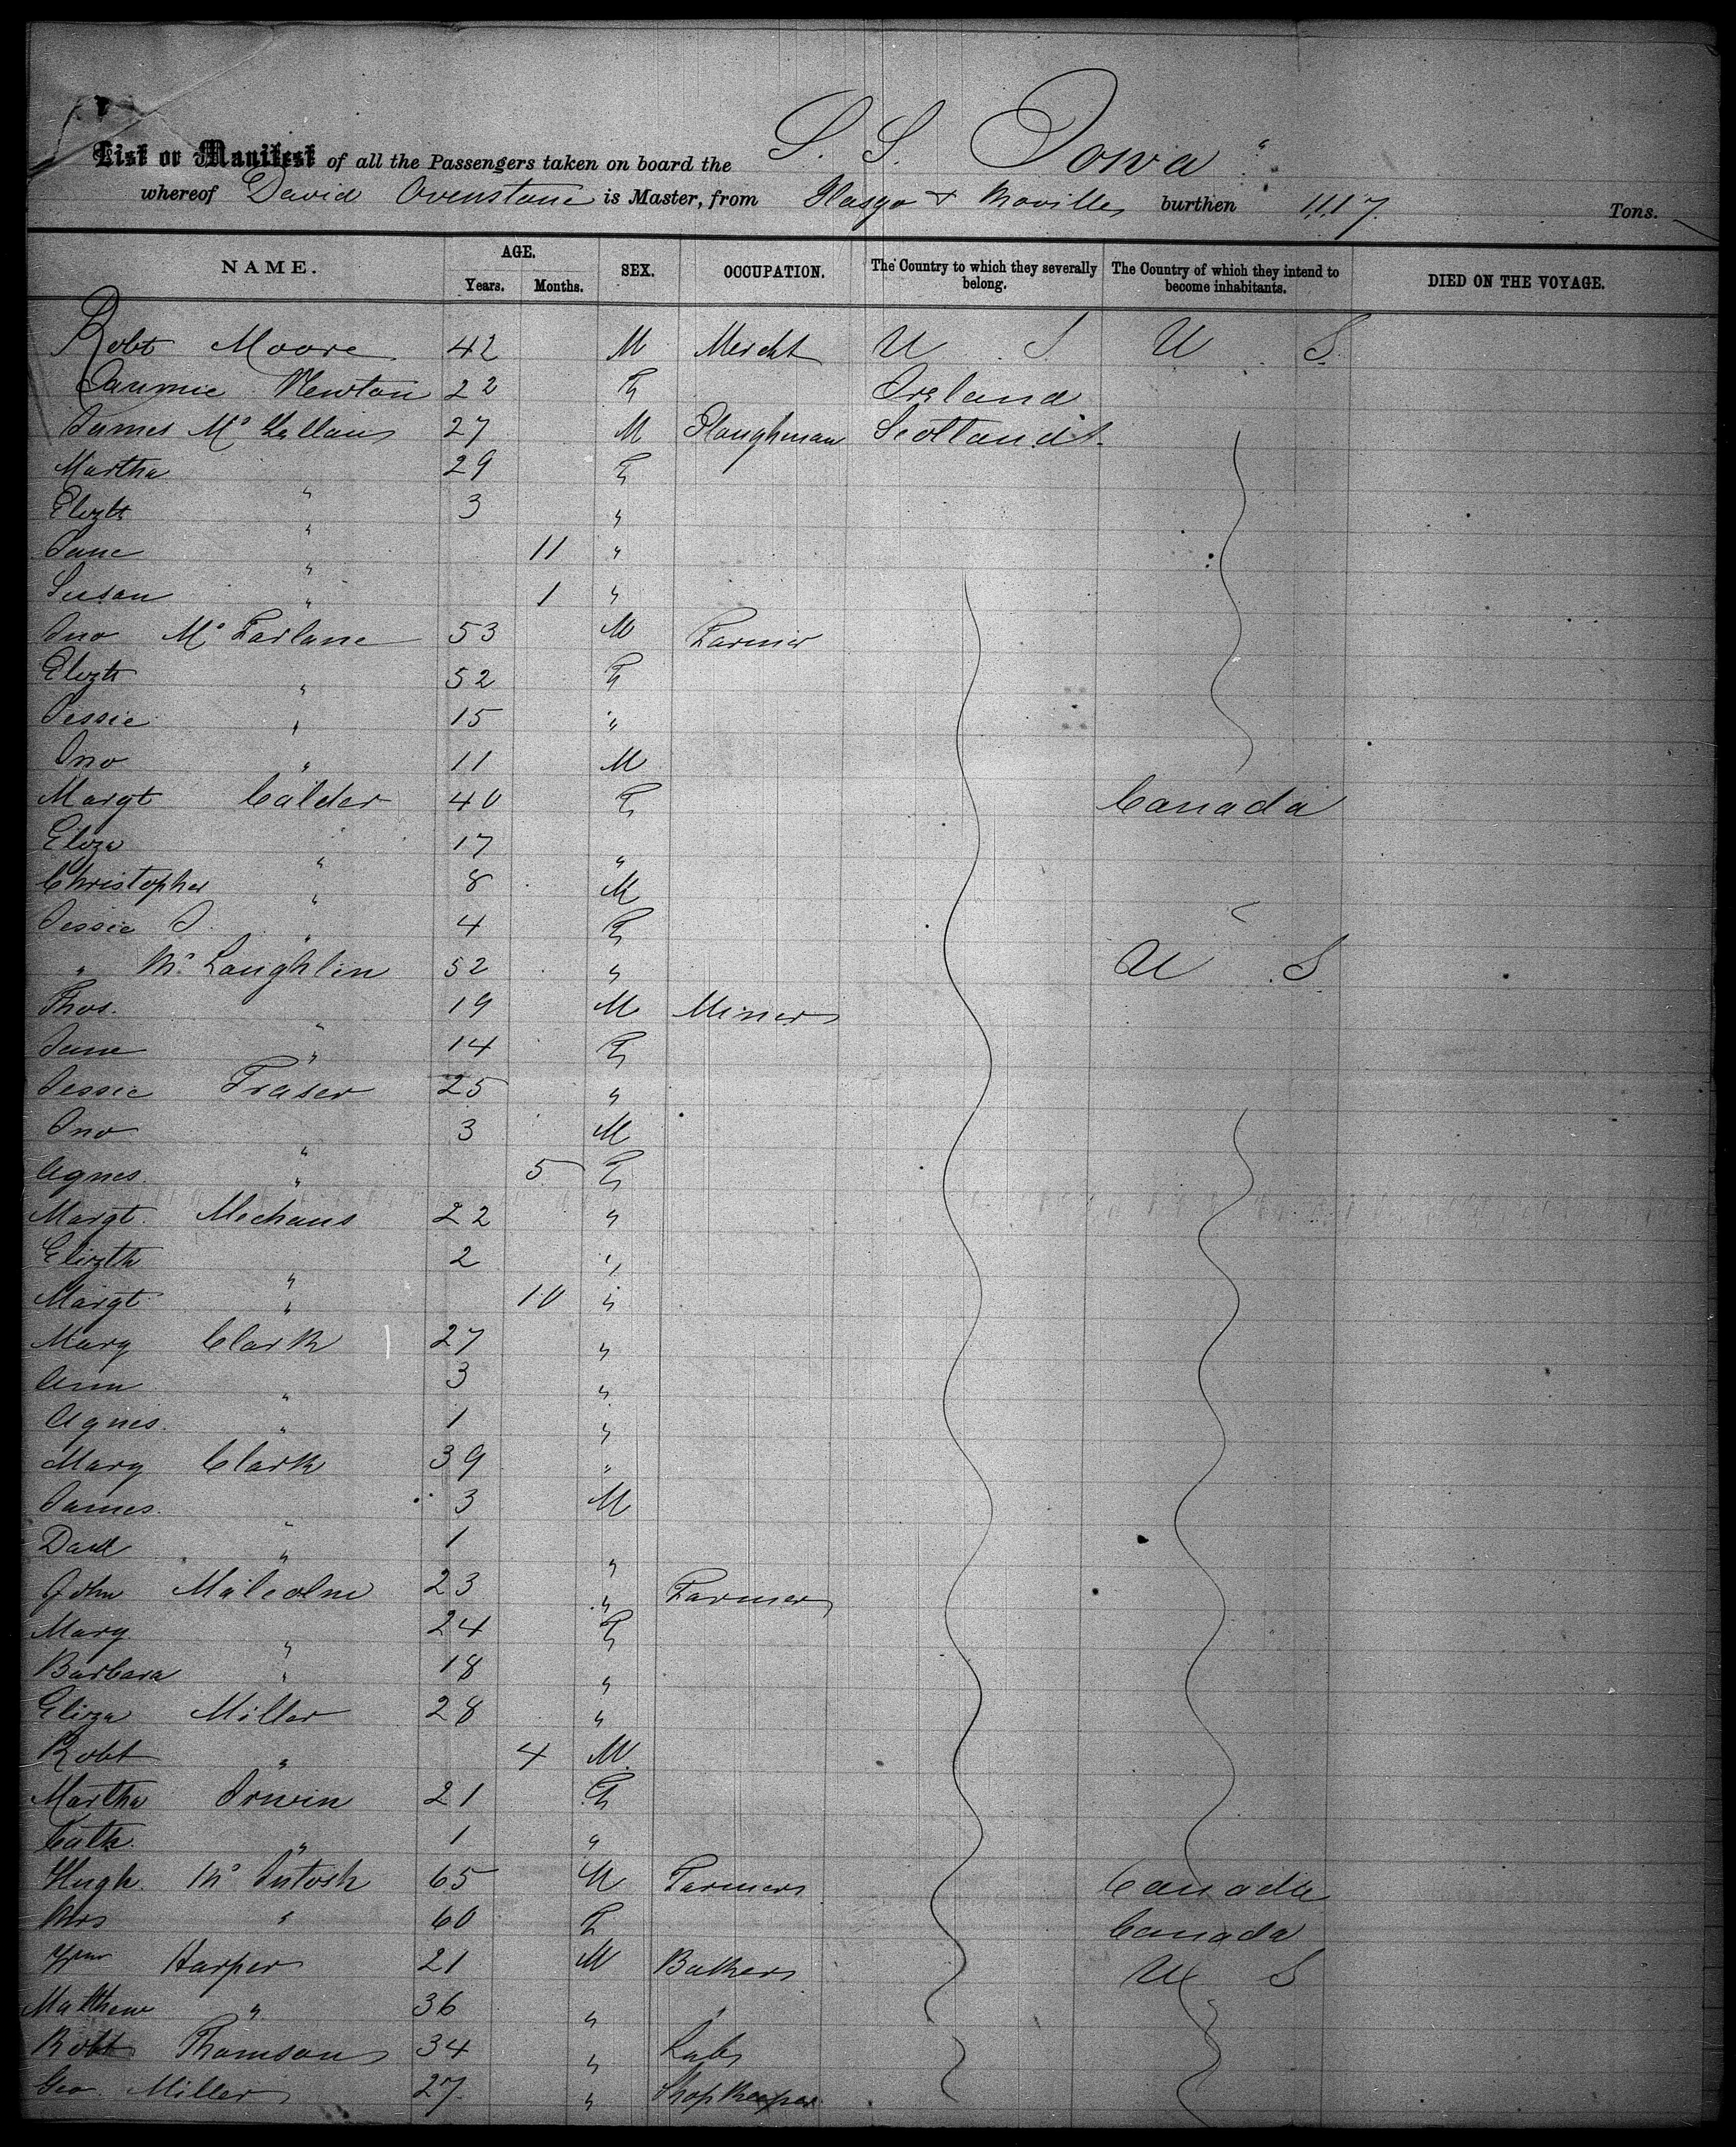 S. S. Iowa "
List or Manifest of all the Passengers taken on board the
whereof David Ovenstone is Master, from Glasgo & Moville burthen 1117 Tons.
NAME. AGE. Years. Months. SEX. OCCUPATION. The Country to which they severally belong. The Country of which they intend to become inhabitants. DIED ON THE VOYAGE.
Robt Moore 42 M Mercht U S U S
Newton 22 F Ireland
James Mc Lellan 27 M Ploughman Scotland
Martha " 29 F
Elizth " 3 "
Jane " 11 "
Susan " 1 "
Jno Mc Farlane 53 M Farmer
Elizth " 52 F
Jessie " 15 "
Jno " 11 M
Margt Calder 40 F Canada
Eliza " 17 "
Christopher " 8 M
Jessie J. " 4 F
" Mc Laughlin 52 " U S
Thos. " 19 M Miner
Jane " 14 F
Jessie Fraser 25 "
Jno " 3 M
Agnes " 5 F
Margt. Mechans 22 "
Elizth " 2 "
Margt " 10 "
Mary Clark 27 "
Ann " 3 "
Agnes. " 1 "
Mary Clark 39 "
James. " 3 M
Davd " 1 "
John Malcolm 23 " Farmer
Mary " 24 F
Barbara " 18 "
Eliza Miller 28 "
Robt " 4 M
Martha Irwin 21 F
Cath. " 1 "
Hugh Mc Intosh 65 M Farmer Canada
Mrs " 60 F Canada
Wm Harper 21 M U S
Mathew " 36 " "
Robt Thomson 34 " Labr
Geo. Miller 27 " Shopkeeper